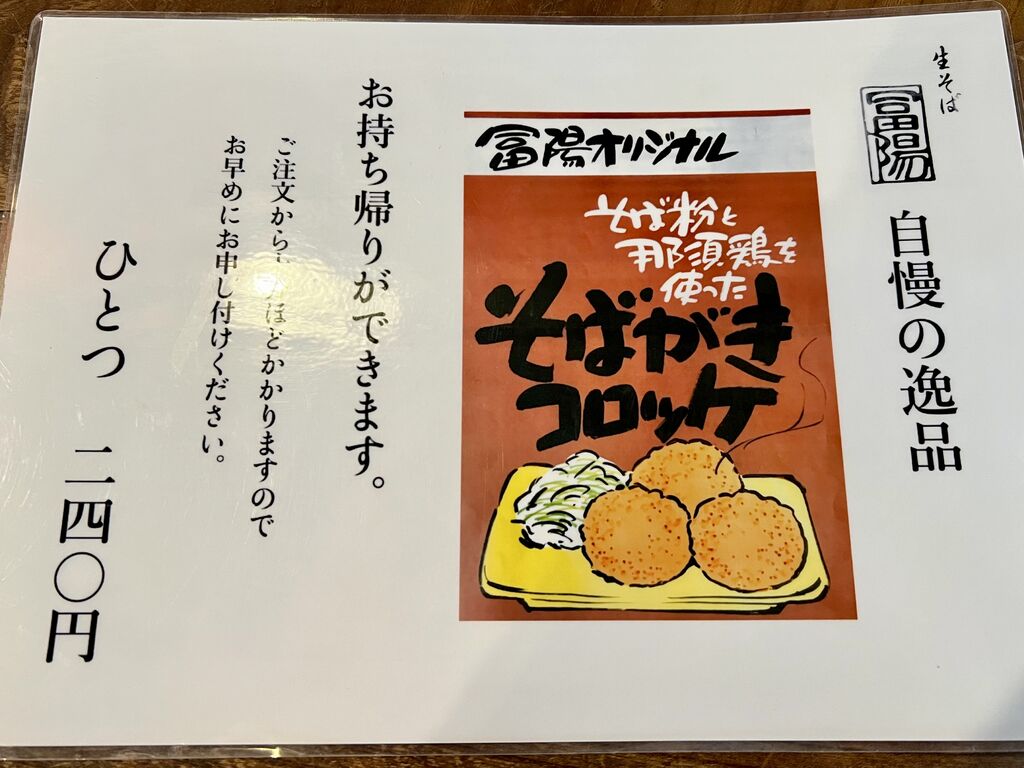 生そば
冨陽
自慢の逸品
冨陽オリジナル
そば粉と
那須鶏を
使った
そばがき
コロッケ
お持ち帰りができます。
ご注文から
ほどかかりますので
お早めにお申し付けください。
ひとつ 二四〇円